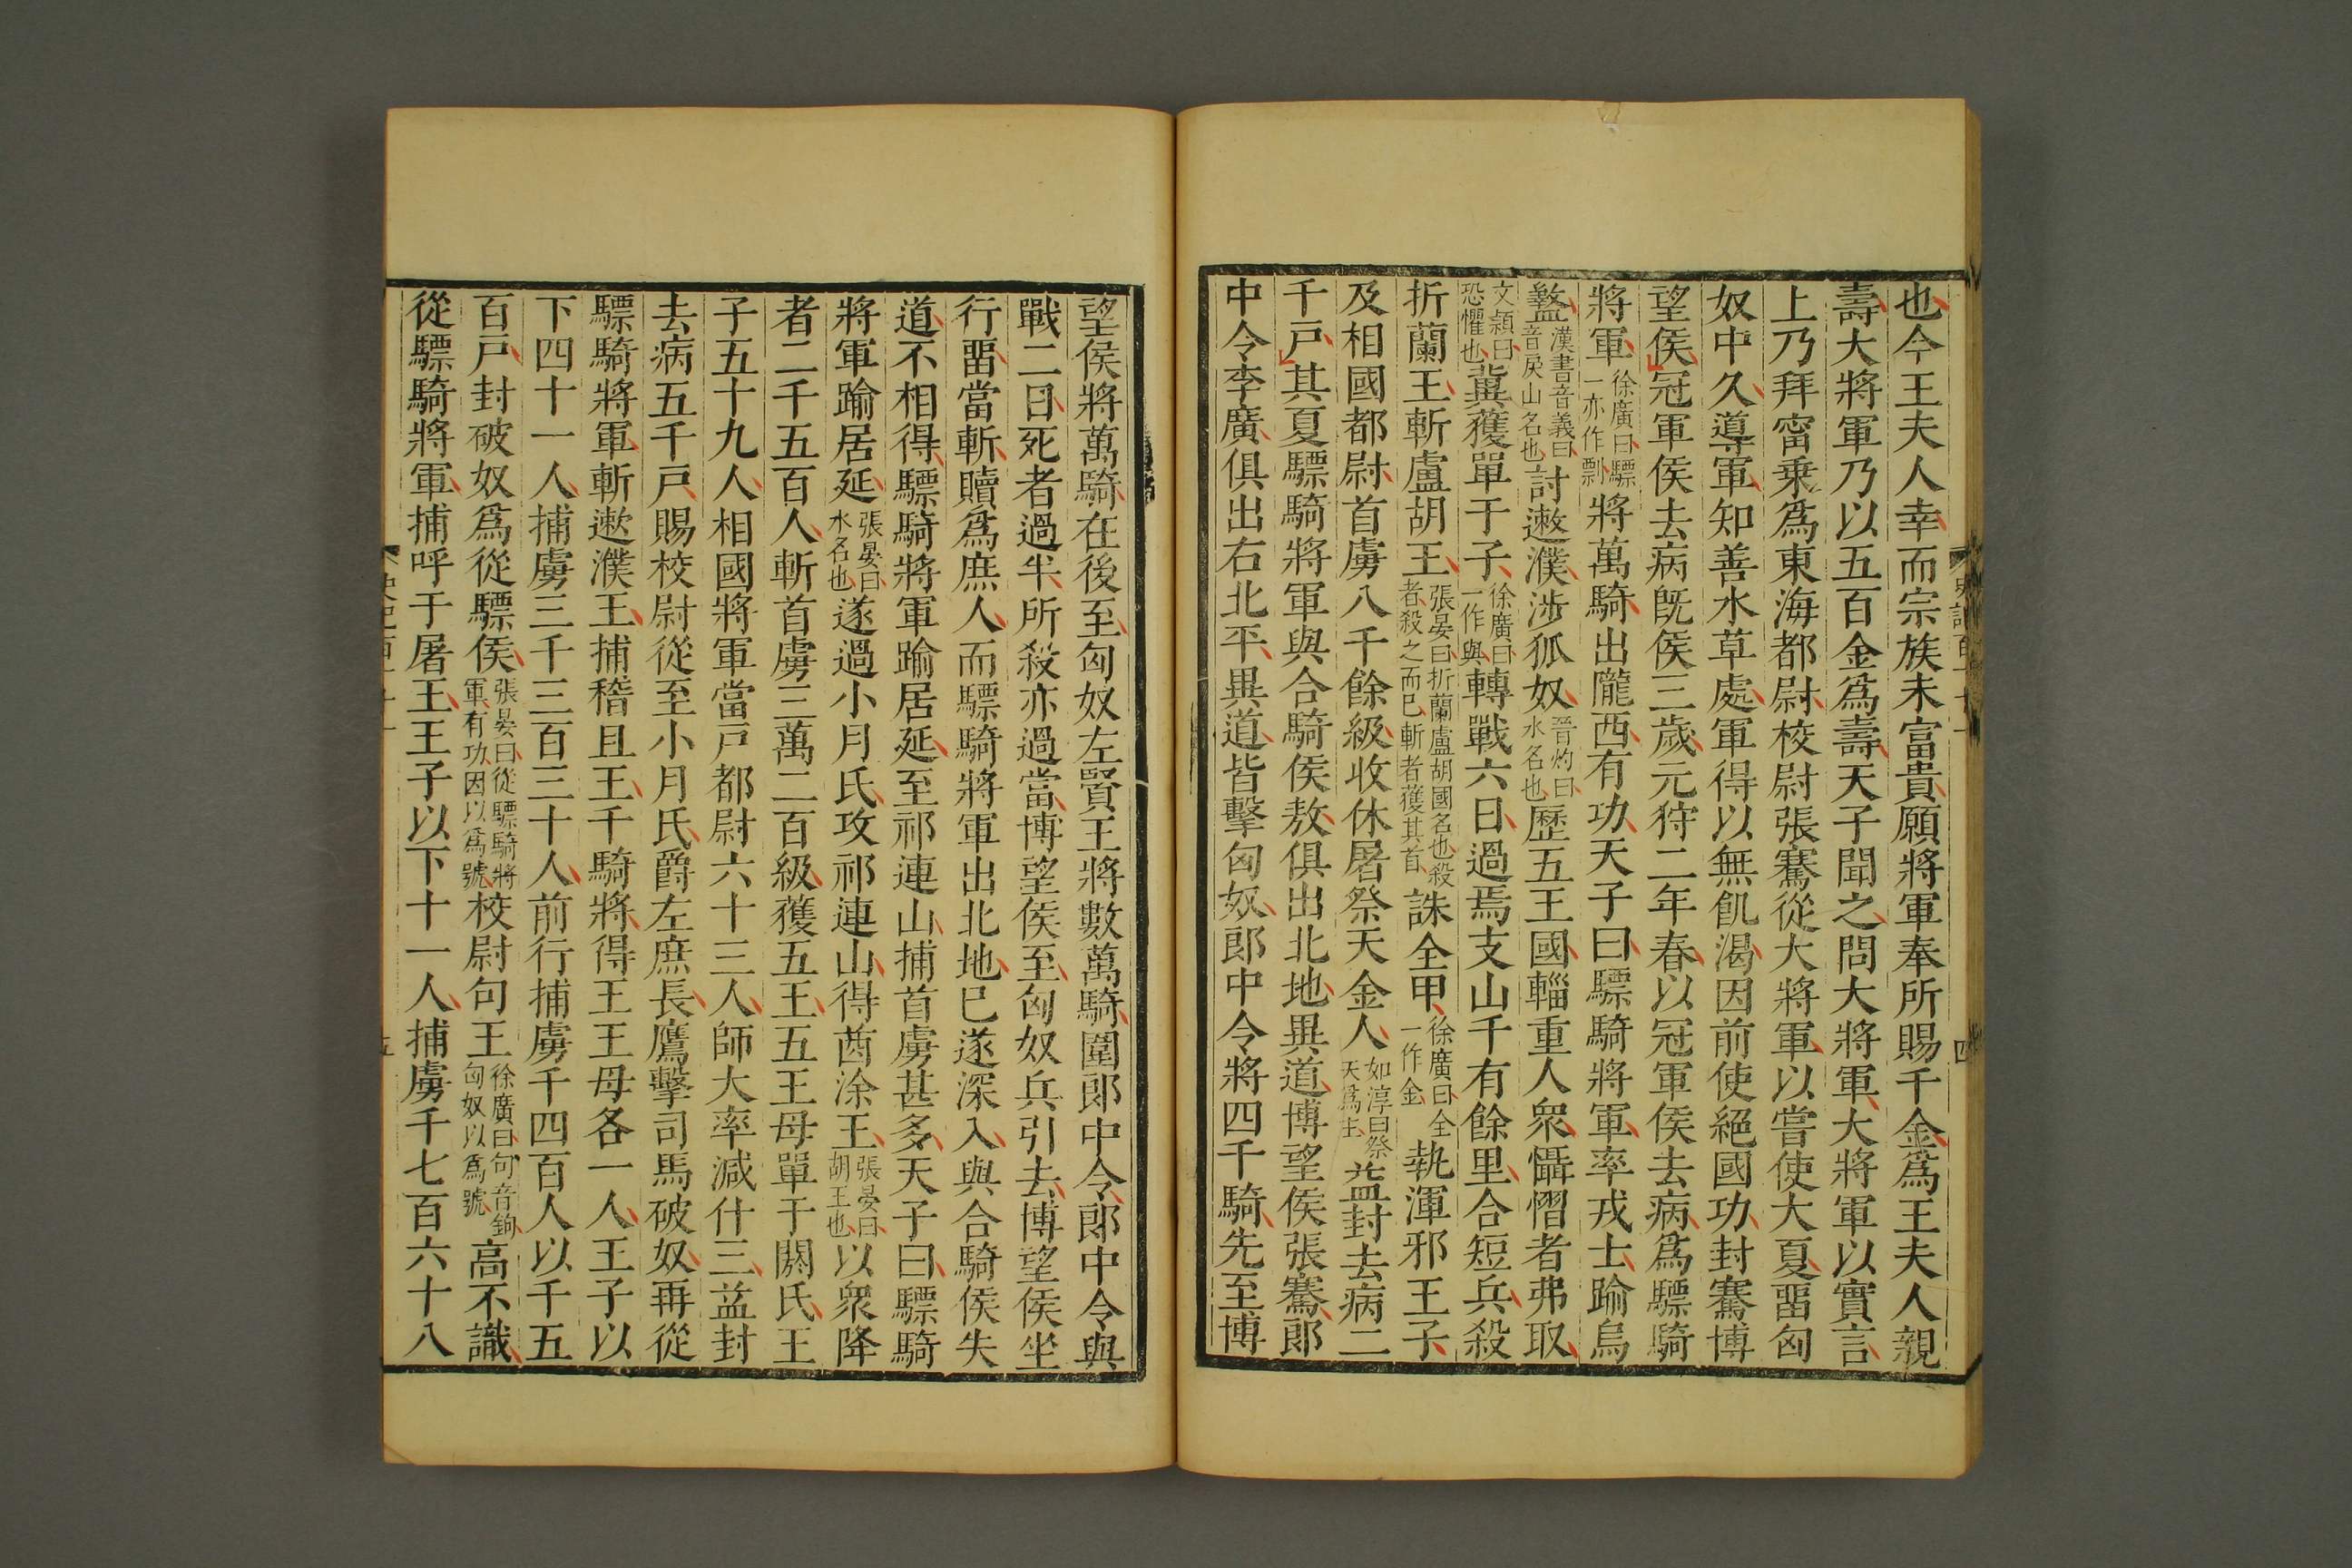 也今王夫人幸而宗族未富貴願將軍奉所賜千金爲王夫人親
壽大將軍乃以五百金爲壽天子聞之問大將軍大將軍以實言
上乃拜甯乗爲東海都尉校尉張騫從大將軍以嘗使大夏畱匈
奴中久導軍知善水草處軍得以無飢渴因前使絕國功封騫博
望侯冠軍侯去病旣侯三歲元狩二年春以冠軍侯去病爲驃騎
將軍徐廣曰驃一亦作剽將萬騎出隴西有功天子曰驃騎將軍率戎士踰烏
盭漢書音義曰音戾山名也討遫濮涉狐奴晉灼曰水名也歷五王國輜重人衆懾慴者弗取
文穎曰恐懼也冀獲單于子徐廣曰一作與轉戰六日過焉支山千有餘里合短兵殺
折蘭王斬盧胡王張晏曰折蘭盧胡國名也殺者殺之而巳斬者獲其首誅全甲徐廣曰全一作金執渾邪王子
及相國都尉首虜八千餘級收休屠祭天金人如淳曰祭天爲主益封去病二
千戸其夏驃騎將軍與合騎侯敖俱出北地異道博望侯張騫郎
中令李廣俱出右北平異道皆擊匈奴郎中令將四千騎先至博
史記百一十一
四
望侯將萬騎在後至匈奴左賢王將數萬騎圍郎中令郎中令與
戰二日死者過半所殺亦過當博望侯至匈奴兵引去博望侯坐
行畱當斬贖爲庶人而驃騎將軍出北地巳遂深入與合騎侯失
道不相得驃騎將軍踰居延至祁連山捕首虜甚多天子曰驃騎
將軍踰居延張晏曰水名也遂過小月氏攻祁連山得酋涂王張晏曰胡王也以衆降
者二千五百人斬首虜三萬二百級獲五王五王母單于閼氏王
子五十九人相國將軍當戸都尉六十三人師大率減什三益封
去病五千戸賜校尉從至小月氏爵左庶長鷹擊司馬破奴再從
驃騎將軍斬遬濮王捕稽且王千騎將得王王母各一人王子以
下四十一人捕虜三千三百三十人前行捕虜千四百人以千五
百戸封破奴爲從驃侯張晏曰從驃騎將軍有功因以爲號校尉句王徐廣曰句音鉤匈奴以爲號高不識
從驃騎將軍捕呼于屠王王子以下十一人捕虜千七百六十八